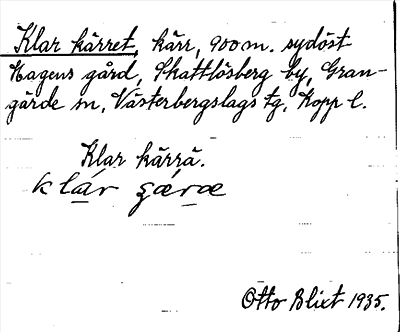 Klar kärret, kärr, 900 m. sydöst
Hagens gård, Skattlösberg by, Gran-
gärde sn, Västerbergslags tg, Kopp l.
Klar kärrä.
klár gæræ
Otto Blixt 1935.